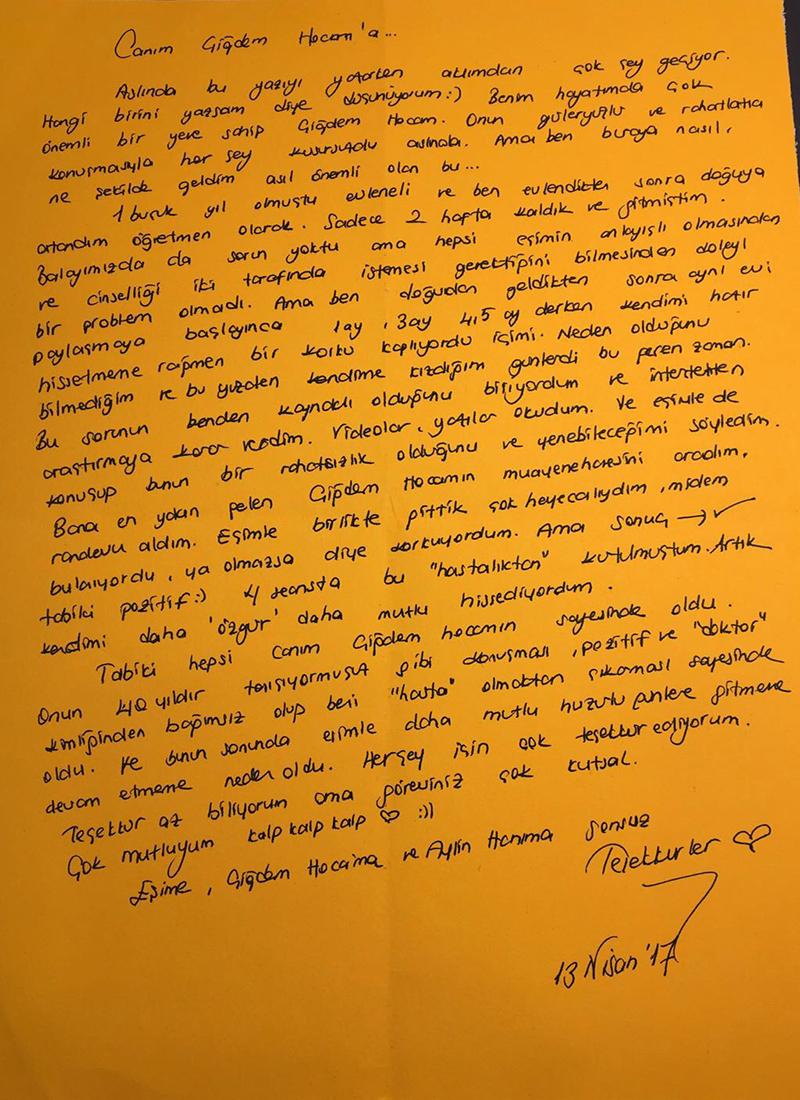 Canım Çiğdem Hocam'a...
Aslında bu yazıyı yazarken aklımdan çok şey geçiyor.
Hangi birini yazsam diye düşünüyorum:) Benim hayatımda çok
önemli bir yere sahip Çiğdem Hocam. Onun güleryüzlü ve rahatlatıcı
konuşmasıyla her şey kusursuzdu aslında. Ama ben buraya nasıl,
ne şekilde geldim asıl önemli olan bu...
1 buçuk yıl olmuştu evleneli ve ben evlendikten sonra doğuya
atandım öğretmen olarak. Sadece 2 hafta kaldık ve gitmiştim.
Balayımızda da sorun yoktu ama hepsi eşimin anlayışlı olmasından
ve cinselliği iki tarafında istemesi gerektiğini bilmesinden dolayı
bir problem olmadı. Ama ben doğudan geldikten sonra aynı evi
paylaşmaya başlayınca 1ay, 3ay 4,5 ay derken kendimi hazır
hissetmeme rağmen bir korku kaplıyordu içimi. Neden olduğunu
bilmediğim ve bu yüzden kendime kızdığım günlerdi bu geçen zaman.
Bu sorunun benden kaynaklı olduğunu biliyordum ve internetten
araştırmaya karar verdim. Videolar, yazılar okudum. Ve eşimle de
konuşup bunun bir rahatsızlık olduğunu ve yenebileceğimi söyledim.
Bana en yakın gelen Çiğdem Hocamın muayenehanesini aradım,
randevu aldım. Eşimle birlikte gittik çok heyecalıydım, midem
bulanıyordu, ya olmazsa diye korkuyordum. Ama sonuç → ✓
tabiki pozitif:) 4 seansta bu "hastalıktan" kutulmuştum. Artık
kendimi daha 'özgür' daha mutlu hissediyordum.
Tabiki hepsi Canım Çiğdem hocamın sayesinde oldu.
Onun 40 yıldır tanışıyormuşuz gibi konuşması, pozitif ve "doktor"
kimliğinden bağımsız olup beni "hasta" olmaktan çıkarması sayesinde
oldu. Ve bunun sonunda eşimle daha mutlu huzurlu günlere gitmeme
devam etmeme neden oldu. Herşey için çok teşekkür ediyorum.
Teşekkür az biliyorum ama göreviniz çok kutsal.
Çok mutluyum kalp kalp kalp ♡ :))
Eşime, Çiğdem Hocama ve Aylin Hanıma sonsuz
Teşekkürler ♡
13 Nisan '17